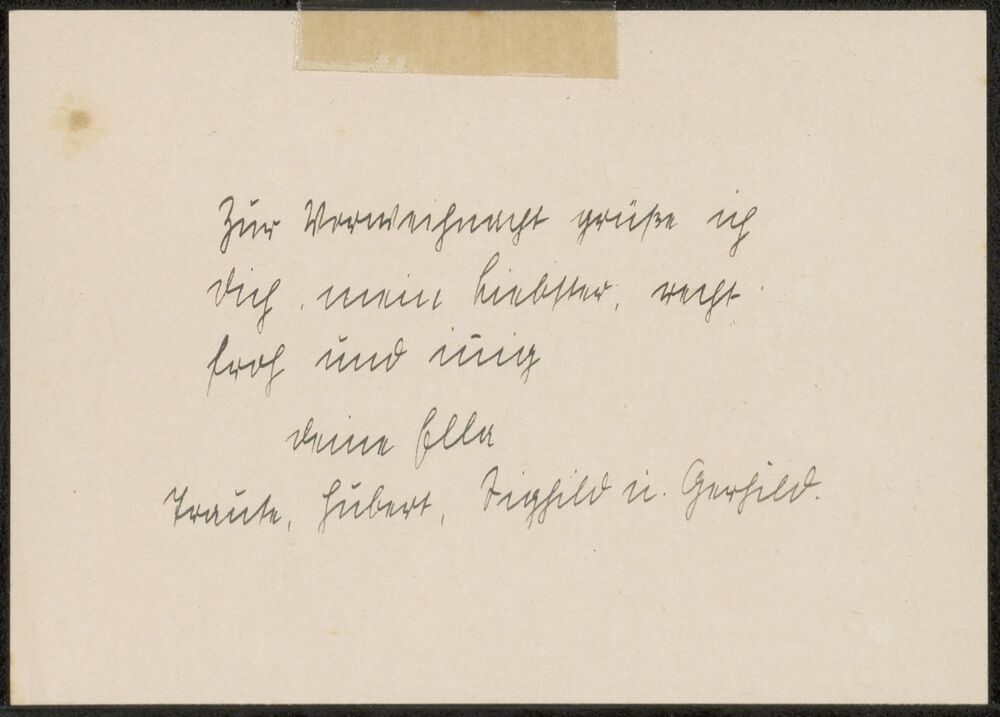 Zur Vorweihnacht grüße ich
dich, mein Liebster, recht
froh und innig
deine Ella
Traute, Hubert, Sighild u. Gerhild.